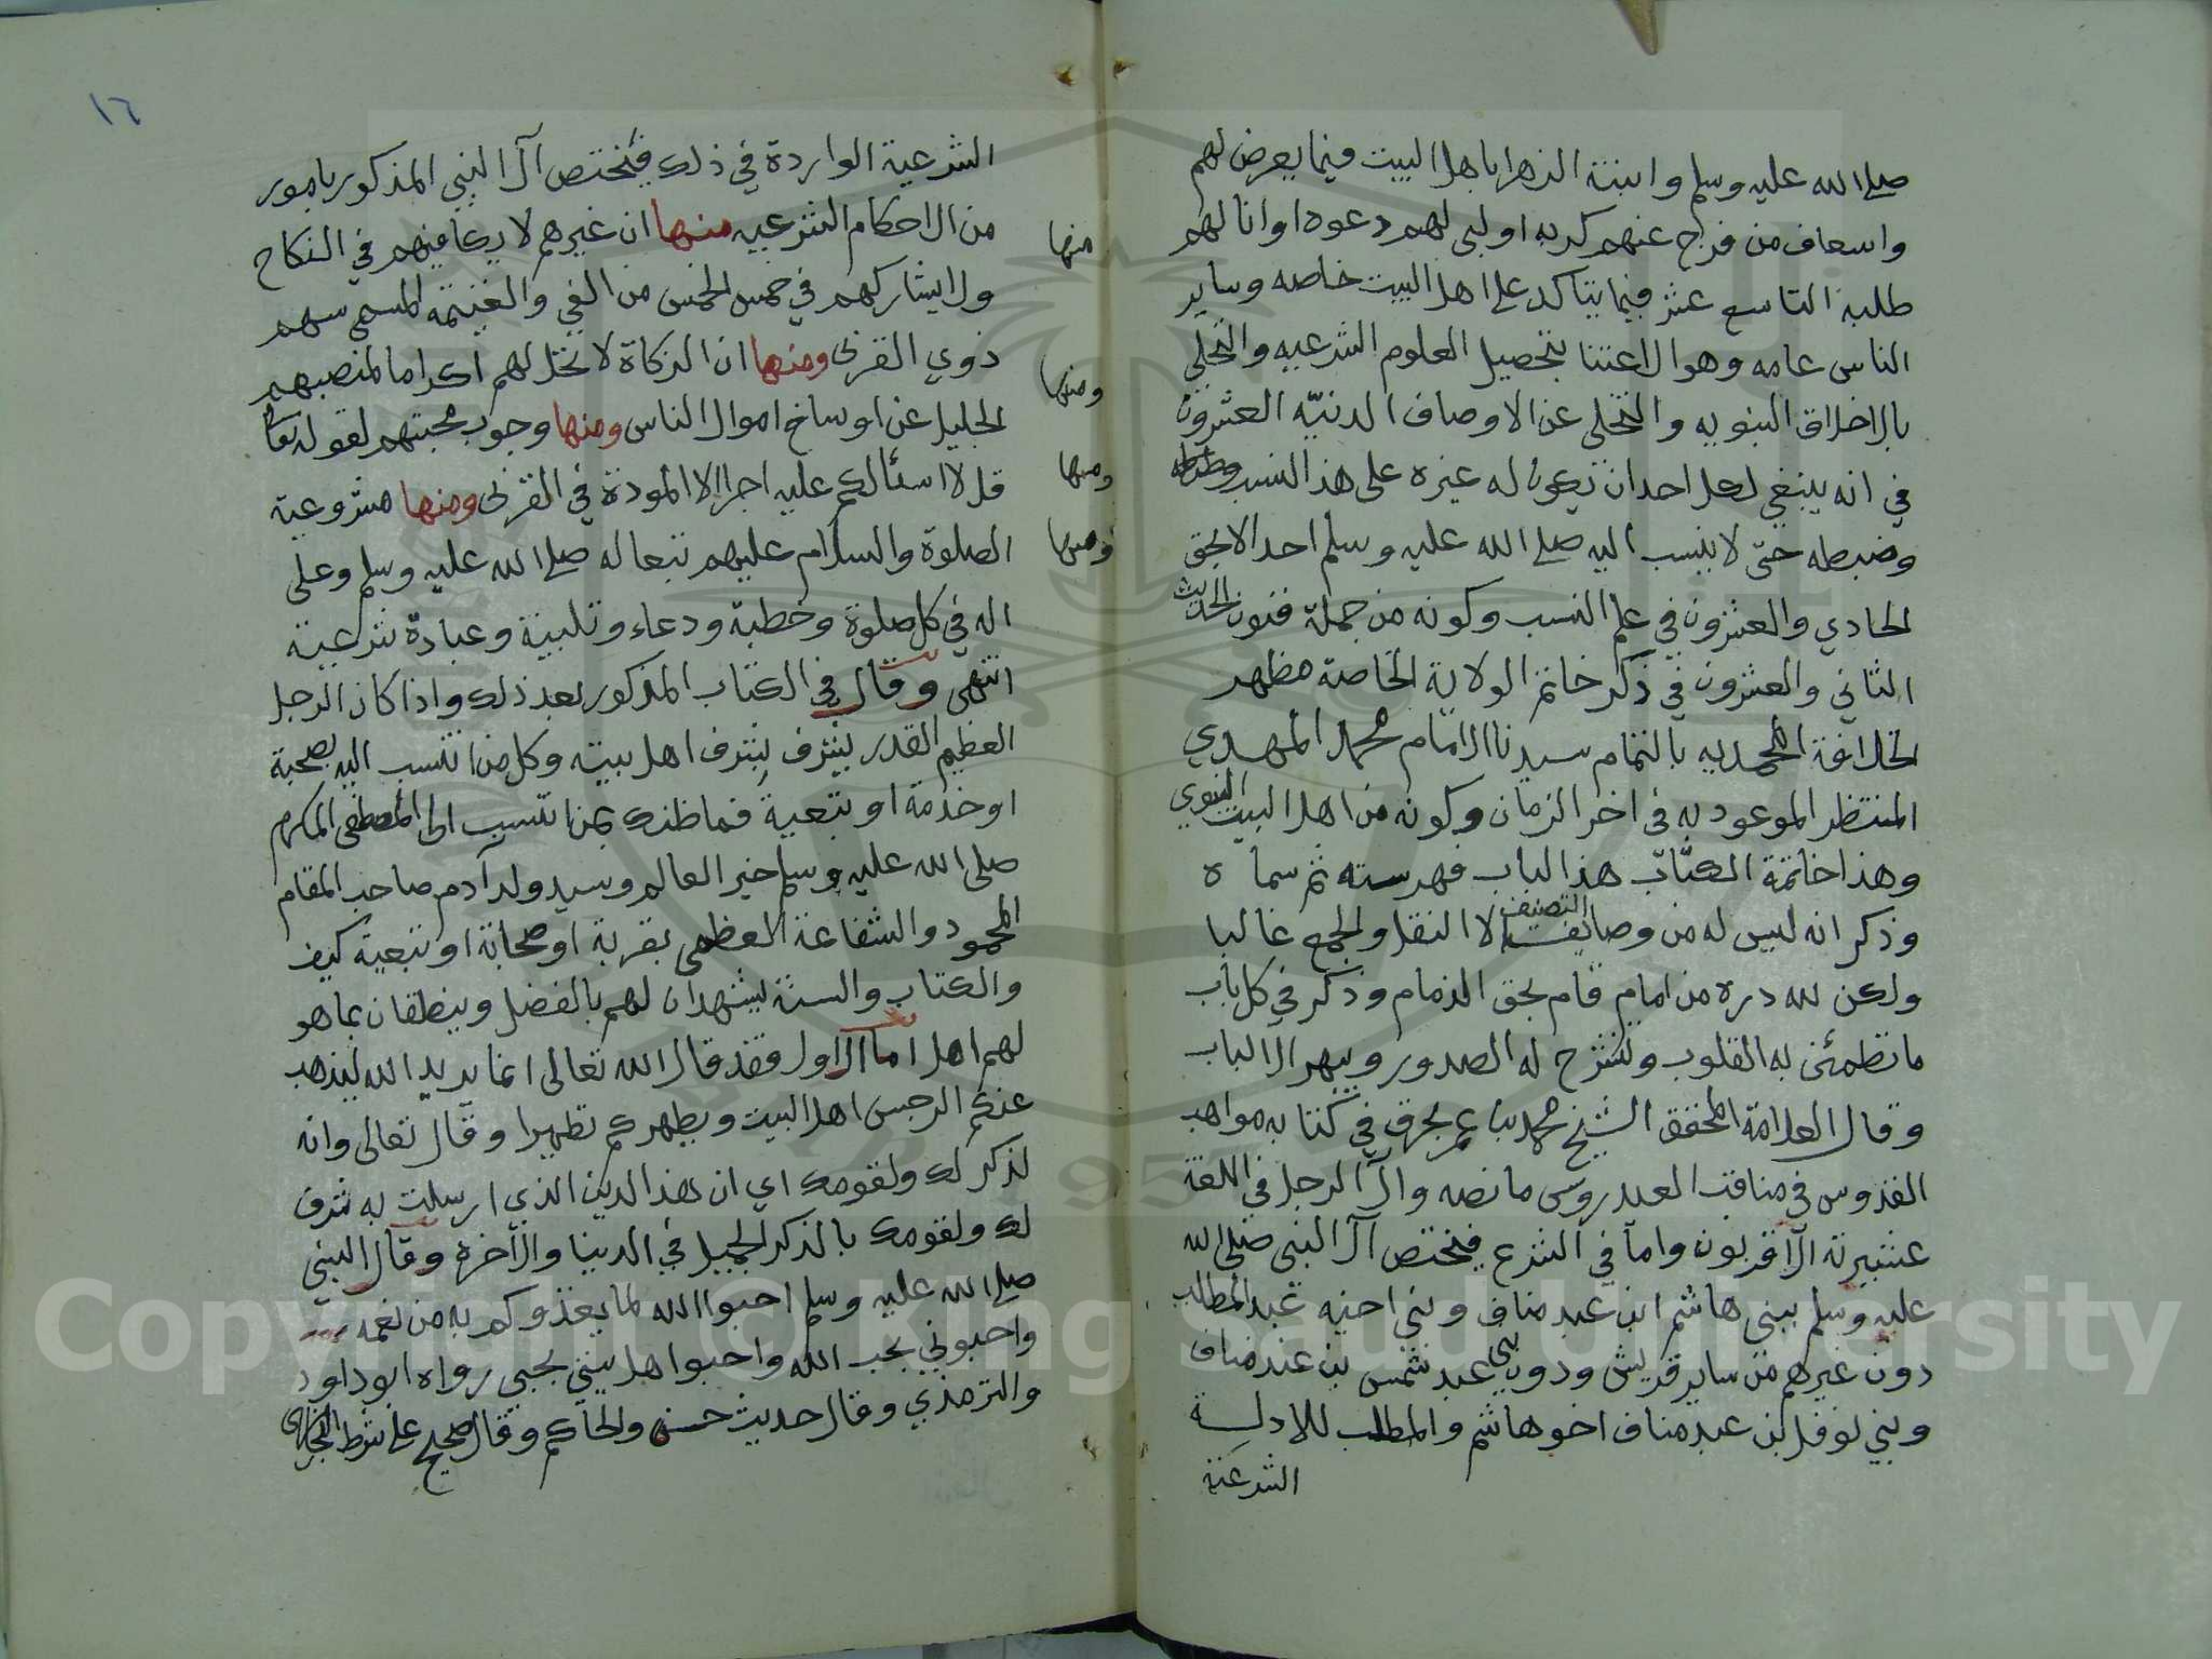 صلى الله عليه وسلم وابنته الزهرا باهل البيت فيما يعرض لهم
واسعاف من فرج عنهم كربه او لبى لهم دعوه او انا لهم
طلبه التاسع عشر فيما يتاكد على اهل البيت خاصه وساير
الناس عامه وهو الاعتنا بتحصيل العلوم الشرعيه والتحلي
بالاخلاق النبويه والتخلى عن الاوصاف الدنيّه العشرون
في انه ينبغي لكل احد ان تكون له غيره على هذا النسب
وضبطه حتى لا ينتسب اليه صلى الله عليه وسلم احد الا بحق
الحادي والعشرون في علم النسب وكونه من جملة فنون الحديث
الثاني والعشرون في ذكر خاتم الولاية الخاصة مظهر
الخلافة المحمديه بالتمام سيدنا الامام محمد المهدي
المنتظر الموعود به في اخر الزمان وكونه من اهل البيت النبوي
وهذا خاتمة الكتاب هذا الباب فهرسته ثم سماه
وذكر انه ليس له من وصايف التصنيف الا النقل والجمع غالبا
ولكن لله دره من امام قام بحق الذمام وذكر في كل باب
ما تطمئن به القلوب وتنشرح له الصدور ويبهر الالباب
وقال العلامة المحقق الشيخ محمد بن عمر بحرق في كتابه مواهب
القدوس في مناقب العيدروس ما نصه وآل الرجل في اللغة
عشيرته الاقربون واما في الشرع فيختص آل النبي صلى الله
عليه وسلم ببني هاشم ابن عبد مناف وبني اخيه عبد المطالب
دون غيرهم من ساير قريش ودون بني عبد شمس بن عبد مناف
وبني نوفل بن عبد مناف اخو هاشم والمطلب للادلة
الشرعية
١٦
الشرعية الواردة في ذلك فيختص آل النبي المذكور بامور
من الاحكام الشرعيه منها ان غيرهم لا يكافيهم في النكاح
منها
ولا يشاركهم في خمس الخمس من الفي والغنيمه المسمى سهم
ذوي القربى ومنها ان الزكاة لا تحل لهم اكراما لمنصبهم
ومنها
الجليل عن اوساخ اموال الناس ومنها وجوب محبتهم لقوله تعا
ومنها
قل لا اسئالكم عليه اجرا الا المودة في القربى ومنها مشروعية
ومنها
الصلوة والسلام عليهم تبعا له صلى الله عليه وسلم وعلى
اله في كل صلوة وخطبة ودعاء وتلبية وعبادة شرعية
انتهى وقال في الكتاب المذكور بعد ذلك واذا كان الرجل
العظيم القدر يشرف بشرف اهل بيته وكل من انتسب اليه بصحبة
او خدمة او بتعية فما ظنك بمن انتسب الى المصطفى المكرم
صلى الله عليه وسلم خير العالم وسيد ولد آدم صاحب المقام
المحمود والشفاعة العظمى بقربة او صحابة او تبعية كيف
والكتاب والسنة يشهدان لهم بالفضل وينطقان بما هو
لهم اهل اما الاول فقد قال الله تعالى انما يريد الله ليذهب
عنكم الرجس اهل البيت ويطهركم تطهيرا وقال تعالى وانه
لذكر لك ولقومك اي ان هذا الدين الذي ارسلت به شرف
لك ولقومك بالذكر الجميل في الدنيا والآخرة وقال النبي
صلى الله عليه وسلم احبوا الله لما يغذوكم به من نعمه
واحبوني بحب الله واحبوا اهل بيتي بحبي رواه ابو داود
والترمذي وقال حديث حسن والحاكم وقال صحيح على شرط البخاري
Copyright © King Saud University